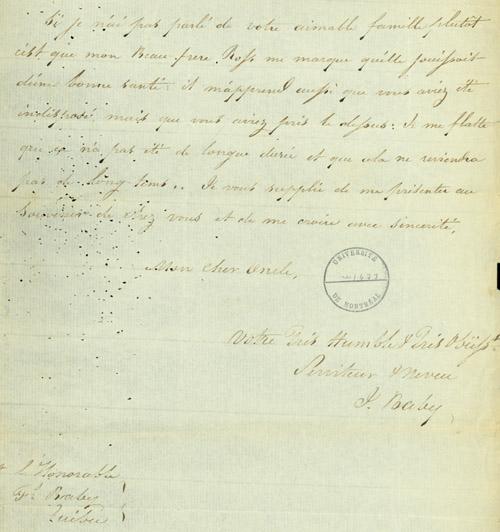 Si je n'ai pas parlé de votre aimable famille plutot
c'est que mon Beau frere Ross me marque qu'elle jouissoit
d'une bonne santé: il m'apprend aussi que vous aviez été
indisposé, mais que vous aviez pris le dessus: Je me flatte
que ce n'a pas été de longue durée et que cela ne reviendra
pas de long tems.. Je vous supplie de me présenter au
souvenir de chez vous et de me croire avec sincerité,
Mon Cher Oncle,
UNIVERSITÉ
DE MONTREAL
Votre Très Humble & Très Obéisst
Serviteur & Neveu
J. Baby
L'Honorable
Baby
Québec